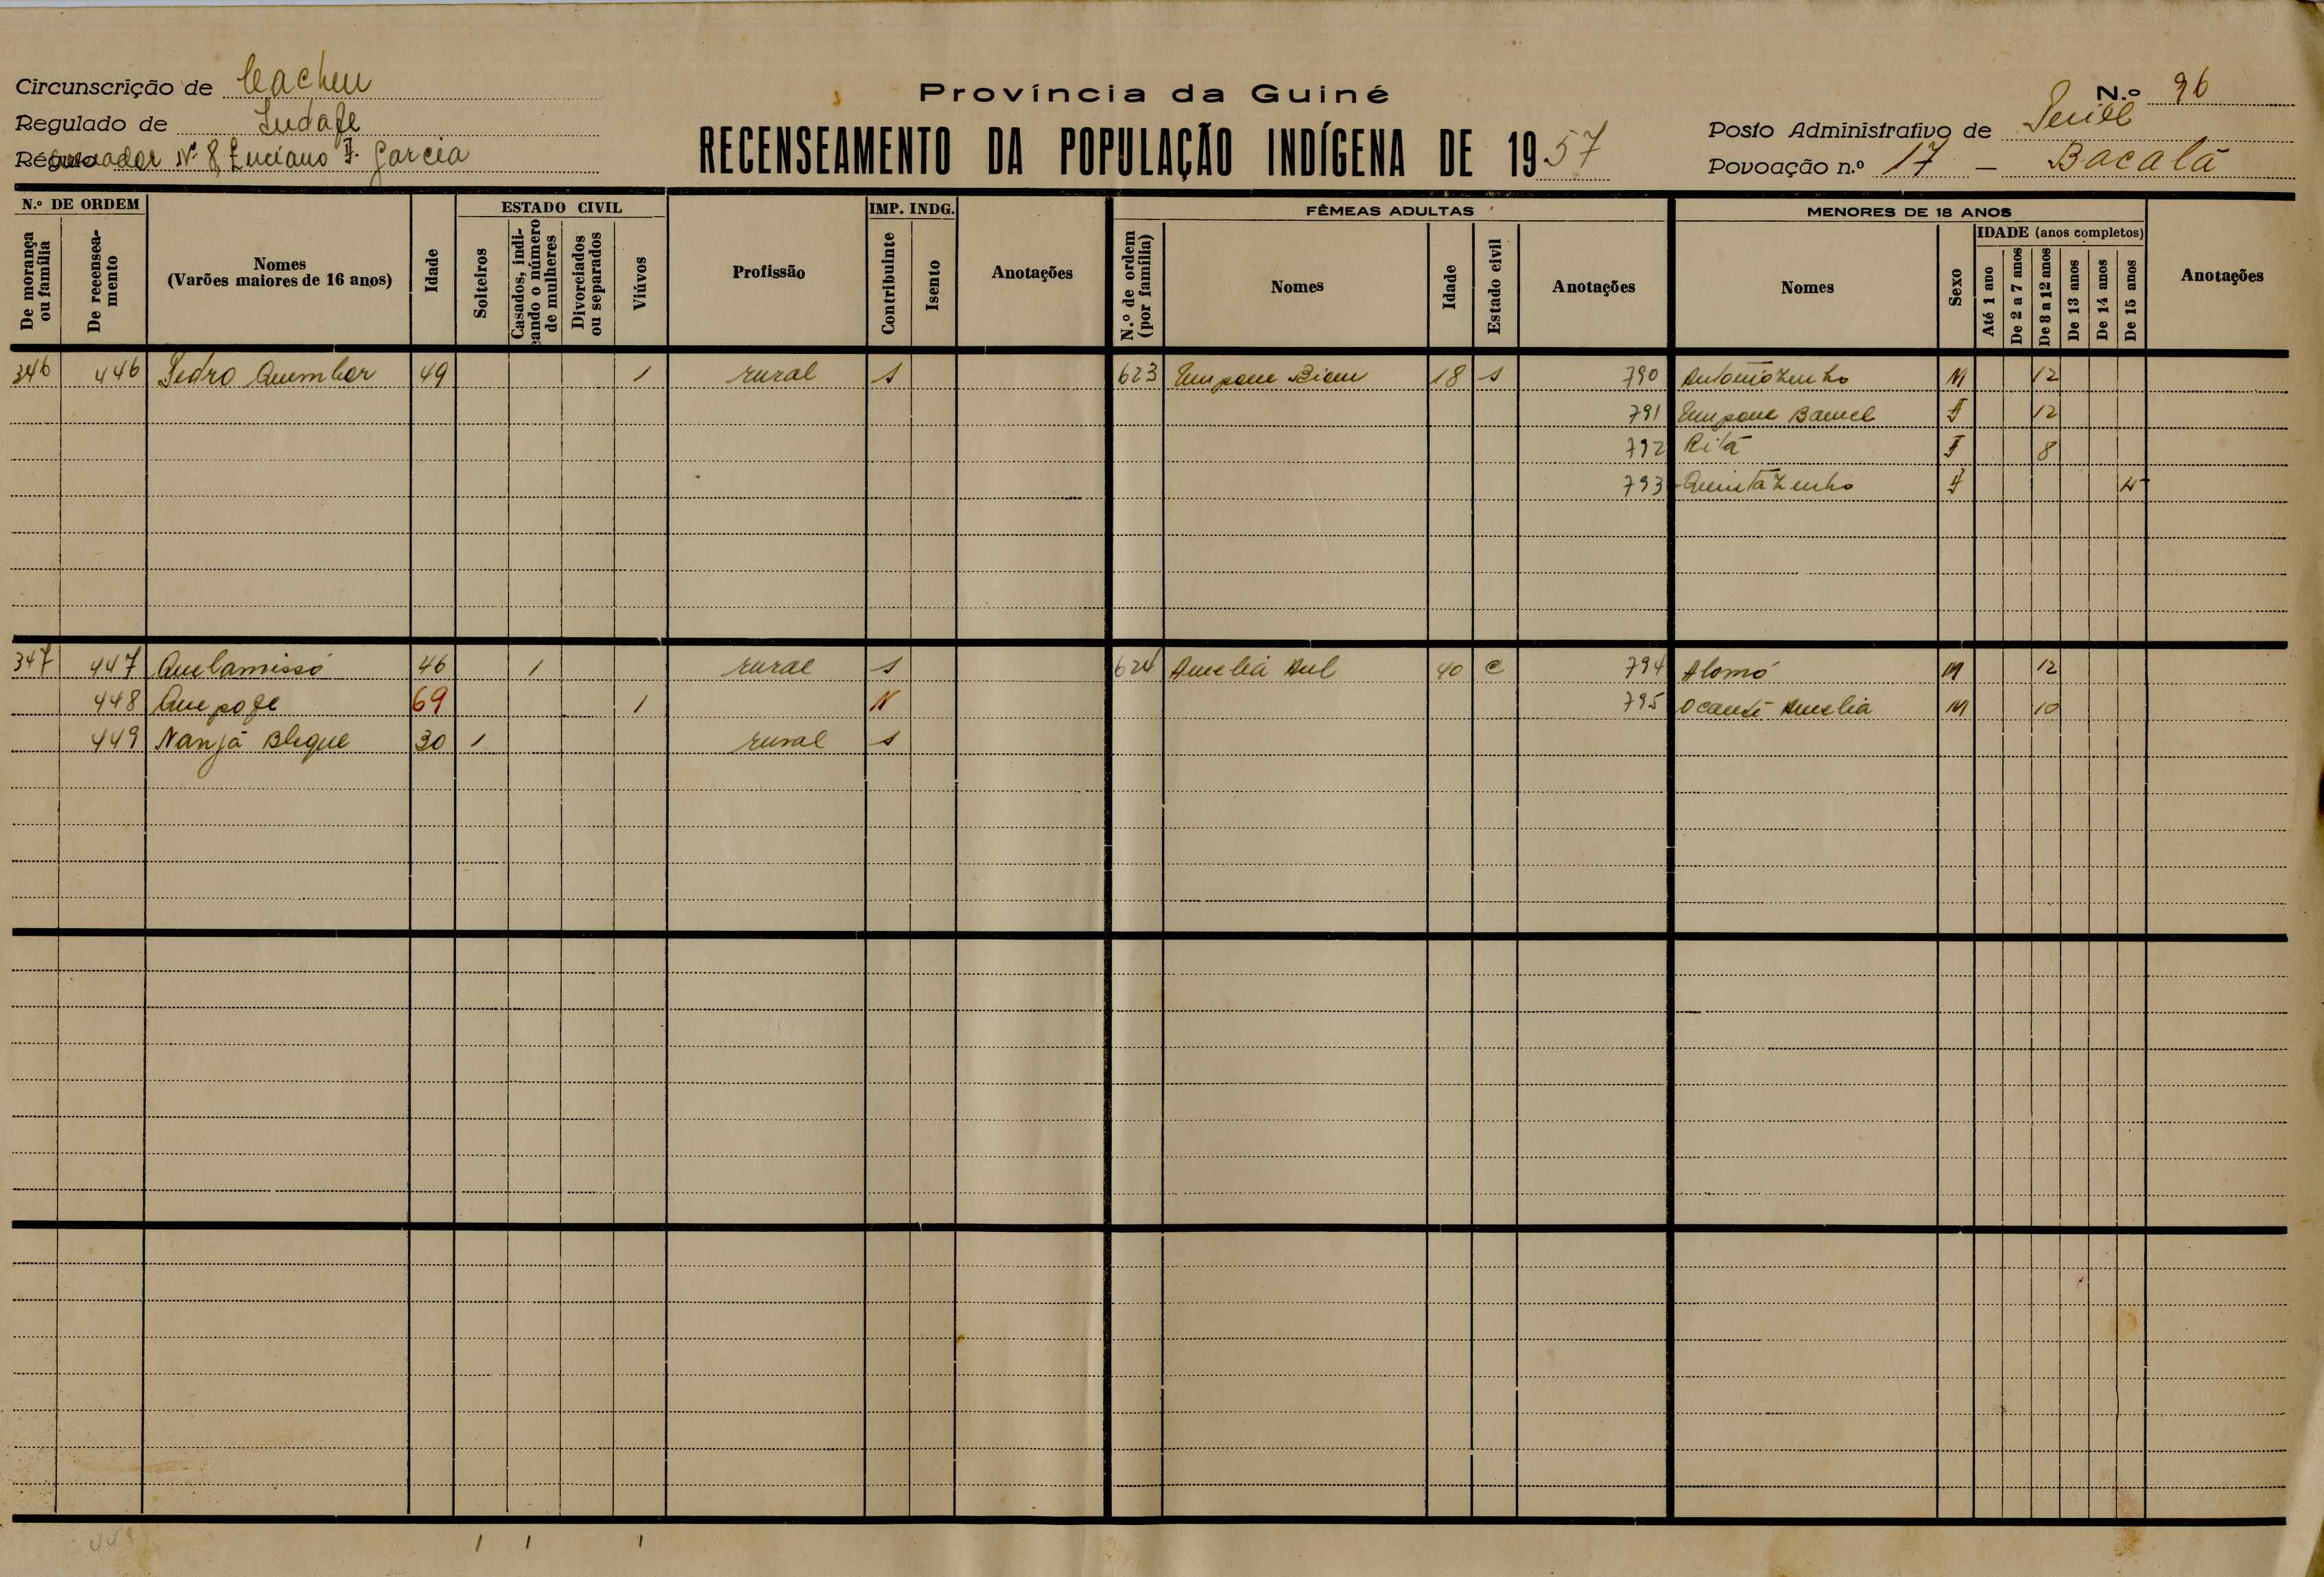 Circunscrição de Cacheu
Regulado de
Nº 8 Luciano F. Garcia
Província da Guiné
RECENSEAMENTO DA POPULAÇÃO INDÍGENA DE 1957
N.º 96
Posto Administrativo de
Povoação n.º 17 - Bacalã
N.º DE ORDEM
De morança ou família
De recenseamento
Nomes
(Varões maiores de 16 anos)
Idade
ESTADO CIVIL
Solteiros
Casados, indicando o número de mulheres
Divorciados ou separados
Viúvos
Profissão
IMP. INDG.
Contribuinte
Isento
Anotações
FÊMEAS ADULTAS
N.º de ordem (por família)
Nomes
Idade
Estado civil
Anotações
MENORES DE 18 ANOS
Nomes
Sexo
IDADE (anos completos)
Até 1 ano
De 2 a 7 anos
De 8 a 12 anos
De 13 anos
De 14 anos
De 15 anos
Anotações
346 446 Pedro 49 1 rural s 623 18 s 790 M 12
791 F 12
792 Ritã F 8
793 F
347 447 46 1 rural s 624 Amelia 40 c 794 Alomó M 12
448 Quepofe 69 1 N 795 Amelia M 10
449 Nanjã Bleque 30 1 rural s
449 1 1 1